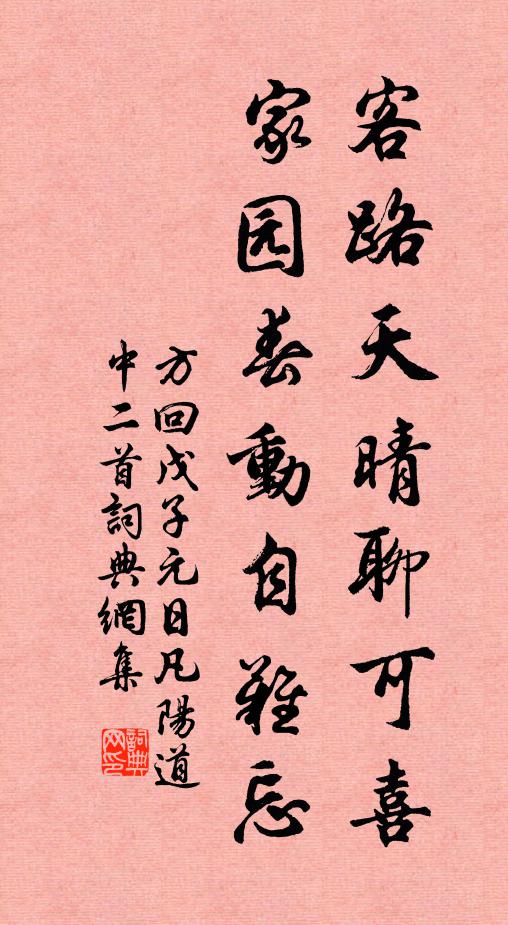 客路天晴聊可喜
家园春動自難忘
方回戊子元日凡陽道
中二首詞典網集
詞典
网印